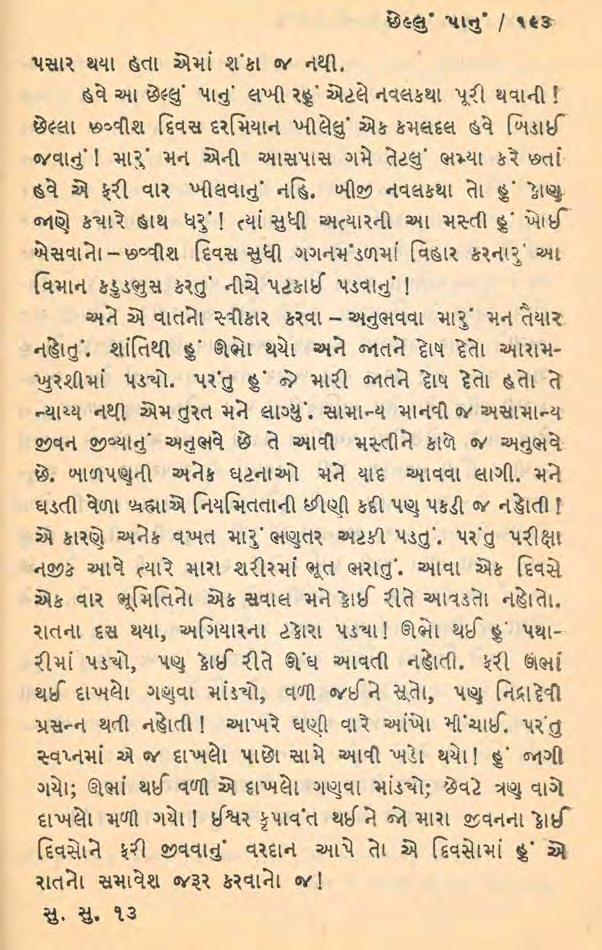 છેલ્લું પાનું / ૧૯૩
પસાર થયા હતા એમાં શંકા જ નથી.
હવે આ છેલ્લું પાનું લખી રહું એટલે નવલકથા પૂરી થવાની !
છેલ્લા છવ્વીશ દિવસ દરમિયાન ખીલેલું એક કમલદલ હવે બિડાઈ
જવાનું ! મારું મન એની આસપાસ ગમે તેટલું ભમ્યા કરે છતાં
હવે એ ફરી વાર ખીલવાનું નહિ. બીજી નવલકથા તો હું કોણ
જાણે ક્યારે હાથ ધરું ! ત્યાં સુધી અત્યારની આ મસ્તી હું ખોઈ
બેસવાનો – છવ્વીશ દિવસ સુધી ગગનમંડળમાં વિહાર કરનારું આ
વિમાન કડ્ડડભુસ કરતું નીચે પટકાઈ પડવાનું !
અને એ વાતનો સ્વીકાર કરવા – અનુભવવા મારું મન તૈયાર
નહોતું. શાંતિથી હું ઊભો થયો અને જાતને દોષ દેતો આરામ-
ખુરશીમાં પડ્યો. પરંતુ હું જે મારી જાતને દોષ દેતો હતો તે
ન્યાય્ય નથી એમ તુરત મને લાગ્યું. સામાન્ય માનવી જ અસામાન્ય
જીવન જીવ્યાનું અનુભવે છે તે આવી મસ્તીને કાળે જ અનુભવે
છે. બાળપણની અનેક ઘટનાઓ મને યાદ આવવા લાગી. મને
ઘડતી વેળા બ્રહ્માએ નિયમિતતાની છીણી કદી પણ પકડી જ નહોતી !
એ કારણે અનેક વખત મારું ભણતર અટકી પડતું. પરંતુ પરીક્ષા
નજીક આવે ત્યારે મારા શરીરમાં ભૂત ભરાતું. આવા એક દિવસે
એક વાર ભૂમિતિનો એક સવાલ મને કોઈ રીતે આવડતો નહોતો.
રાતના દસ થયા, અગિયારના ટકોરા પડ્યા ! ઊભો થઈ હું પથા-
રીમાં પડ્યો, પણ કોઈ રીતે ઊંઘ આવતી નહોતી. ફરી ઊભાં
થઈ દાખલો ગણવા માંડ્યો, વળી જઈને સૂતો, પણ નિદ્રાદેવી
પ્રસન્ન થતી નહોતી ! આખરે ઘણી વારે આંખો મીંચાઈ. પરંતુ
સ્વપ્નમાં એ જ દાખલો પાછો સામે આવી ખડો થયો ! હું જાગી
ગયો; ઊભાં થઈ વળી એ દાખલો ગણવા માંડ્યો; છેવટે ત્રણ વાગે
દાખલો મળી ગયો ! ઈશ્વર કૃપાવંત થઈને જો મારા જીવનના કોઈ
દિવસોને ફરી જીવવાનું વરદાન આપે તો એ દિવસોમાં હું એ
રાતનો સમાવેશ જરૂર કરવાનો જ !
સુ. સુ. ૧૩